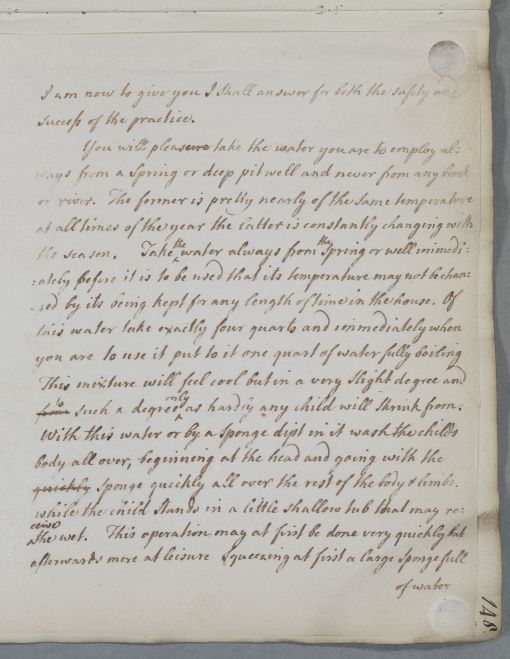 I am now to give you I shall answer for both the safety and
success of the practice.
You will please take the water you are to employ al-
ways from a Spring or deep pit well and never from any brook
or river. The former is pretty nearly of the same temperature
at all times of the year the latter is constantly changing with
the season. Take the water always from the Spring or well immedi-
-ately before it is to be used that its temperature may not be chan-
-ged by its being kept for any length of time in the house. Of
this water take exactly four quarts and immediately when
you are to use it put to it one quart of water fully boiling
This mixture will feel cool but in a very slight degree and
to such a degree only as hardly any child will shrink from.
With this water or by a sponge dipt in it wash the childs
body all over, beginning at the head and going with the
quickly Sponge quickly all over the rest of the body & limbs.
while the child stands in a little shallow tub that may re-
ceive the wet. This operation may at first be done very quickly but
afterwards more at leisure Squeezing at first a large sponge full
of water
148